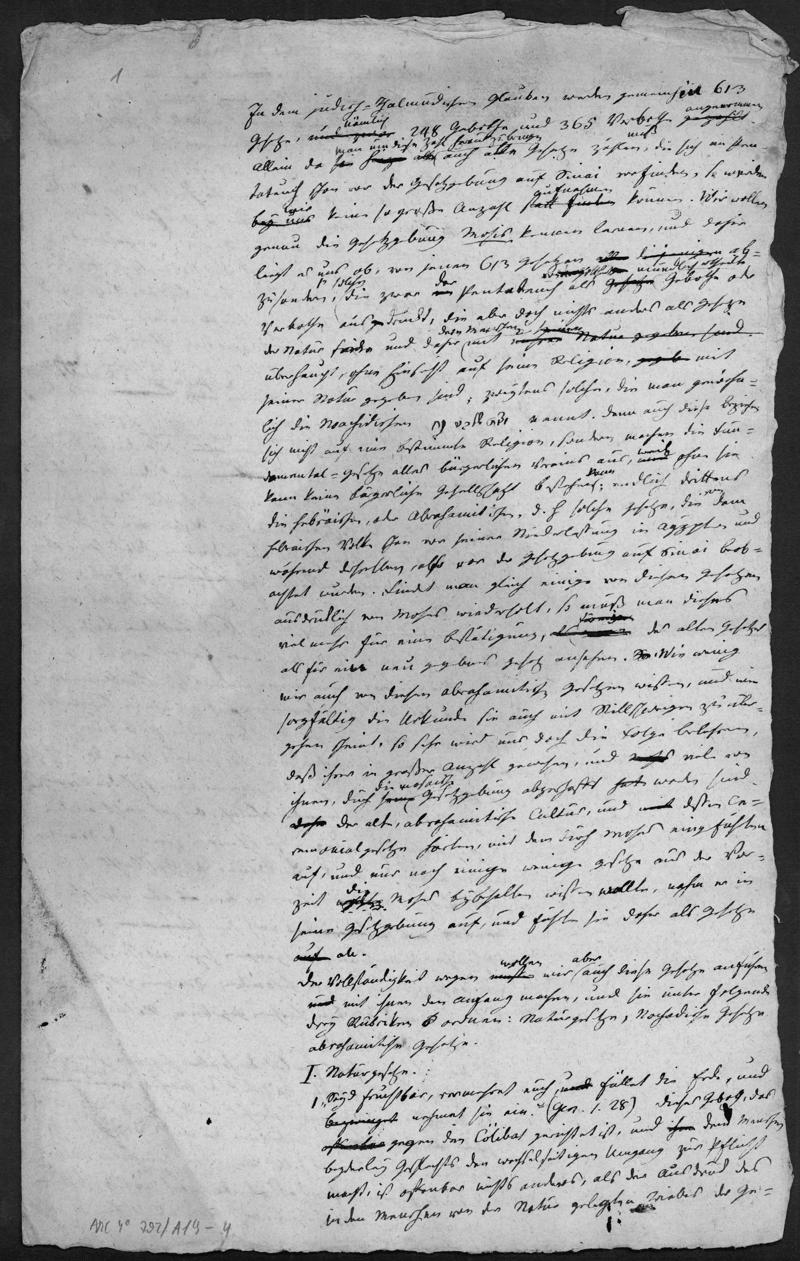 1
In dem jüdisch-Talmudischen Glauben werden gemeinhin 613
Gesetze, nämlich 248 Gebothe und 365 Verbothe angenommen
man um diese Zahl herauszubringen muß
Allein da auch alle Gesetze zählen, die sich im Pen-
tateuch schon vor der Gesetzgebung auf Sinai vorfinden, so würden
wir keine so große Anzahl aufnehmen können. Wir wollen
genau die Gesetzgebung Mosis kennen lernen, und daher
liegt es uns ob, von jenen 613 Gesetzen ab-
zusondern, die zwar der Pentateuch als Gebothe oder
Verbothe ausgedrückt, die aber doch nichts anders als Gesetze
der Natur und daher dem Menschen
überhaupt, ohne Hinsicht auf seine Religion, mit
seiner Natur gegeben sind; zweytens solche, die man gewöhn-
lich die Noachidischen nennt. Denn auch diese beziehen
sich nicht auf eine bestimmte Religion, sondern machen die Fun-
damental-Gesetze alles bürgerlichen Vereins aus, weil ohne sie
keine bürgerliche Gesellschaft bestehen kann; endlich drittens
die hebräischen, oder Abrahamitischen, d. h. solche Gesetze, die von dem
hebräischen Volke schon vor seiner Niederlassung in Aegypten und
während derselben, also vor der Gesetzgebung auf Sinai beob-
achtet wurden. Findet man gleich einige von diesen Gesetzen
ausdrücklich von Moses wiederholt, so muß man dieses
vielmehr für eine Bestätigung, des alten Gesetzes
als für ein neu gegebenes Gesetz ansehen. Wie wenig
wir auch von diesen abrahamitischen Gesetzen wissen, und wie
sorgfältig die Urkunde sie auch mit Stillschweigen zu über-
gehen scheint, so sehr wird uns doch die Folge belehren,
daß ihrer in großer Anzahl gewesen, und viele von
ihnen, durch die mosaische Gesetzgebung abgeschafft worden sind.
der alte, abrahamitische Cultus, und dessen Ce-
remonialgesetze hörten, mit dem durch Moses eingeführten
auf, und nur noch einige wenige Gesetze aus der Vor-
zeit die Moses beybehalten wissen wollte, nahm er in
seine Gesetzgebung auf, und führte sie daher als Gesetze
an.
Der Vollständigkeit wegen wollen wir aber auch diese Gesetze anführen
mit ihnen den Anfang machen, und sie unter folgende
drey Rubriken ordnen: Naturgesetze, Noachidische Gesetze
abrahamitische Gesetze.
I. Naturgesetze.:
1 „Seyd fruchtbar, vermehret euch, füllet die Erde, und
nehmet sie ein.“ (Gen. 1. 28) Dieses Geboth, das
gegen den Cölibat gerichtet ist, und dem Menschen
beyderley Geschlechts den wechselseitigen Umgang zur Pflicht
macht, ist offenbar nichts anderes, als der Ausdruck des
in den Menschen von der Natur gelegten Triebes der Ge-
ARC 4° 792/A19-4